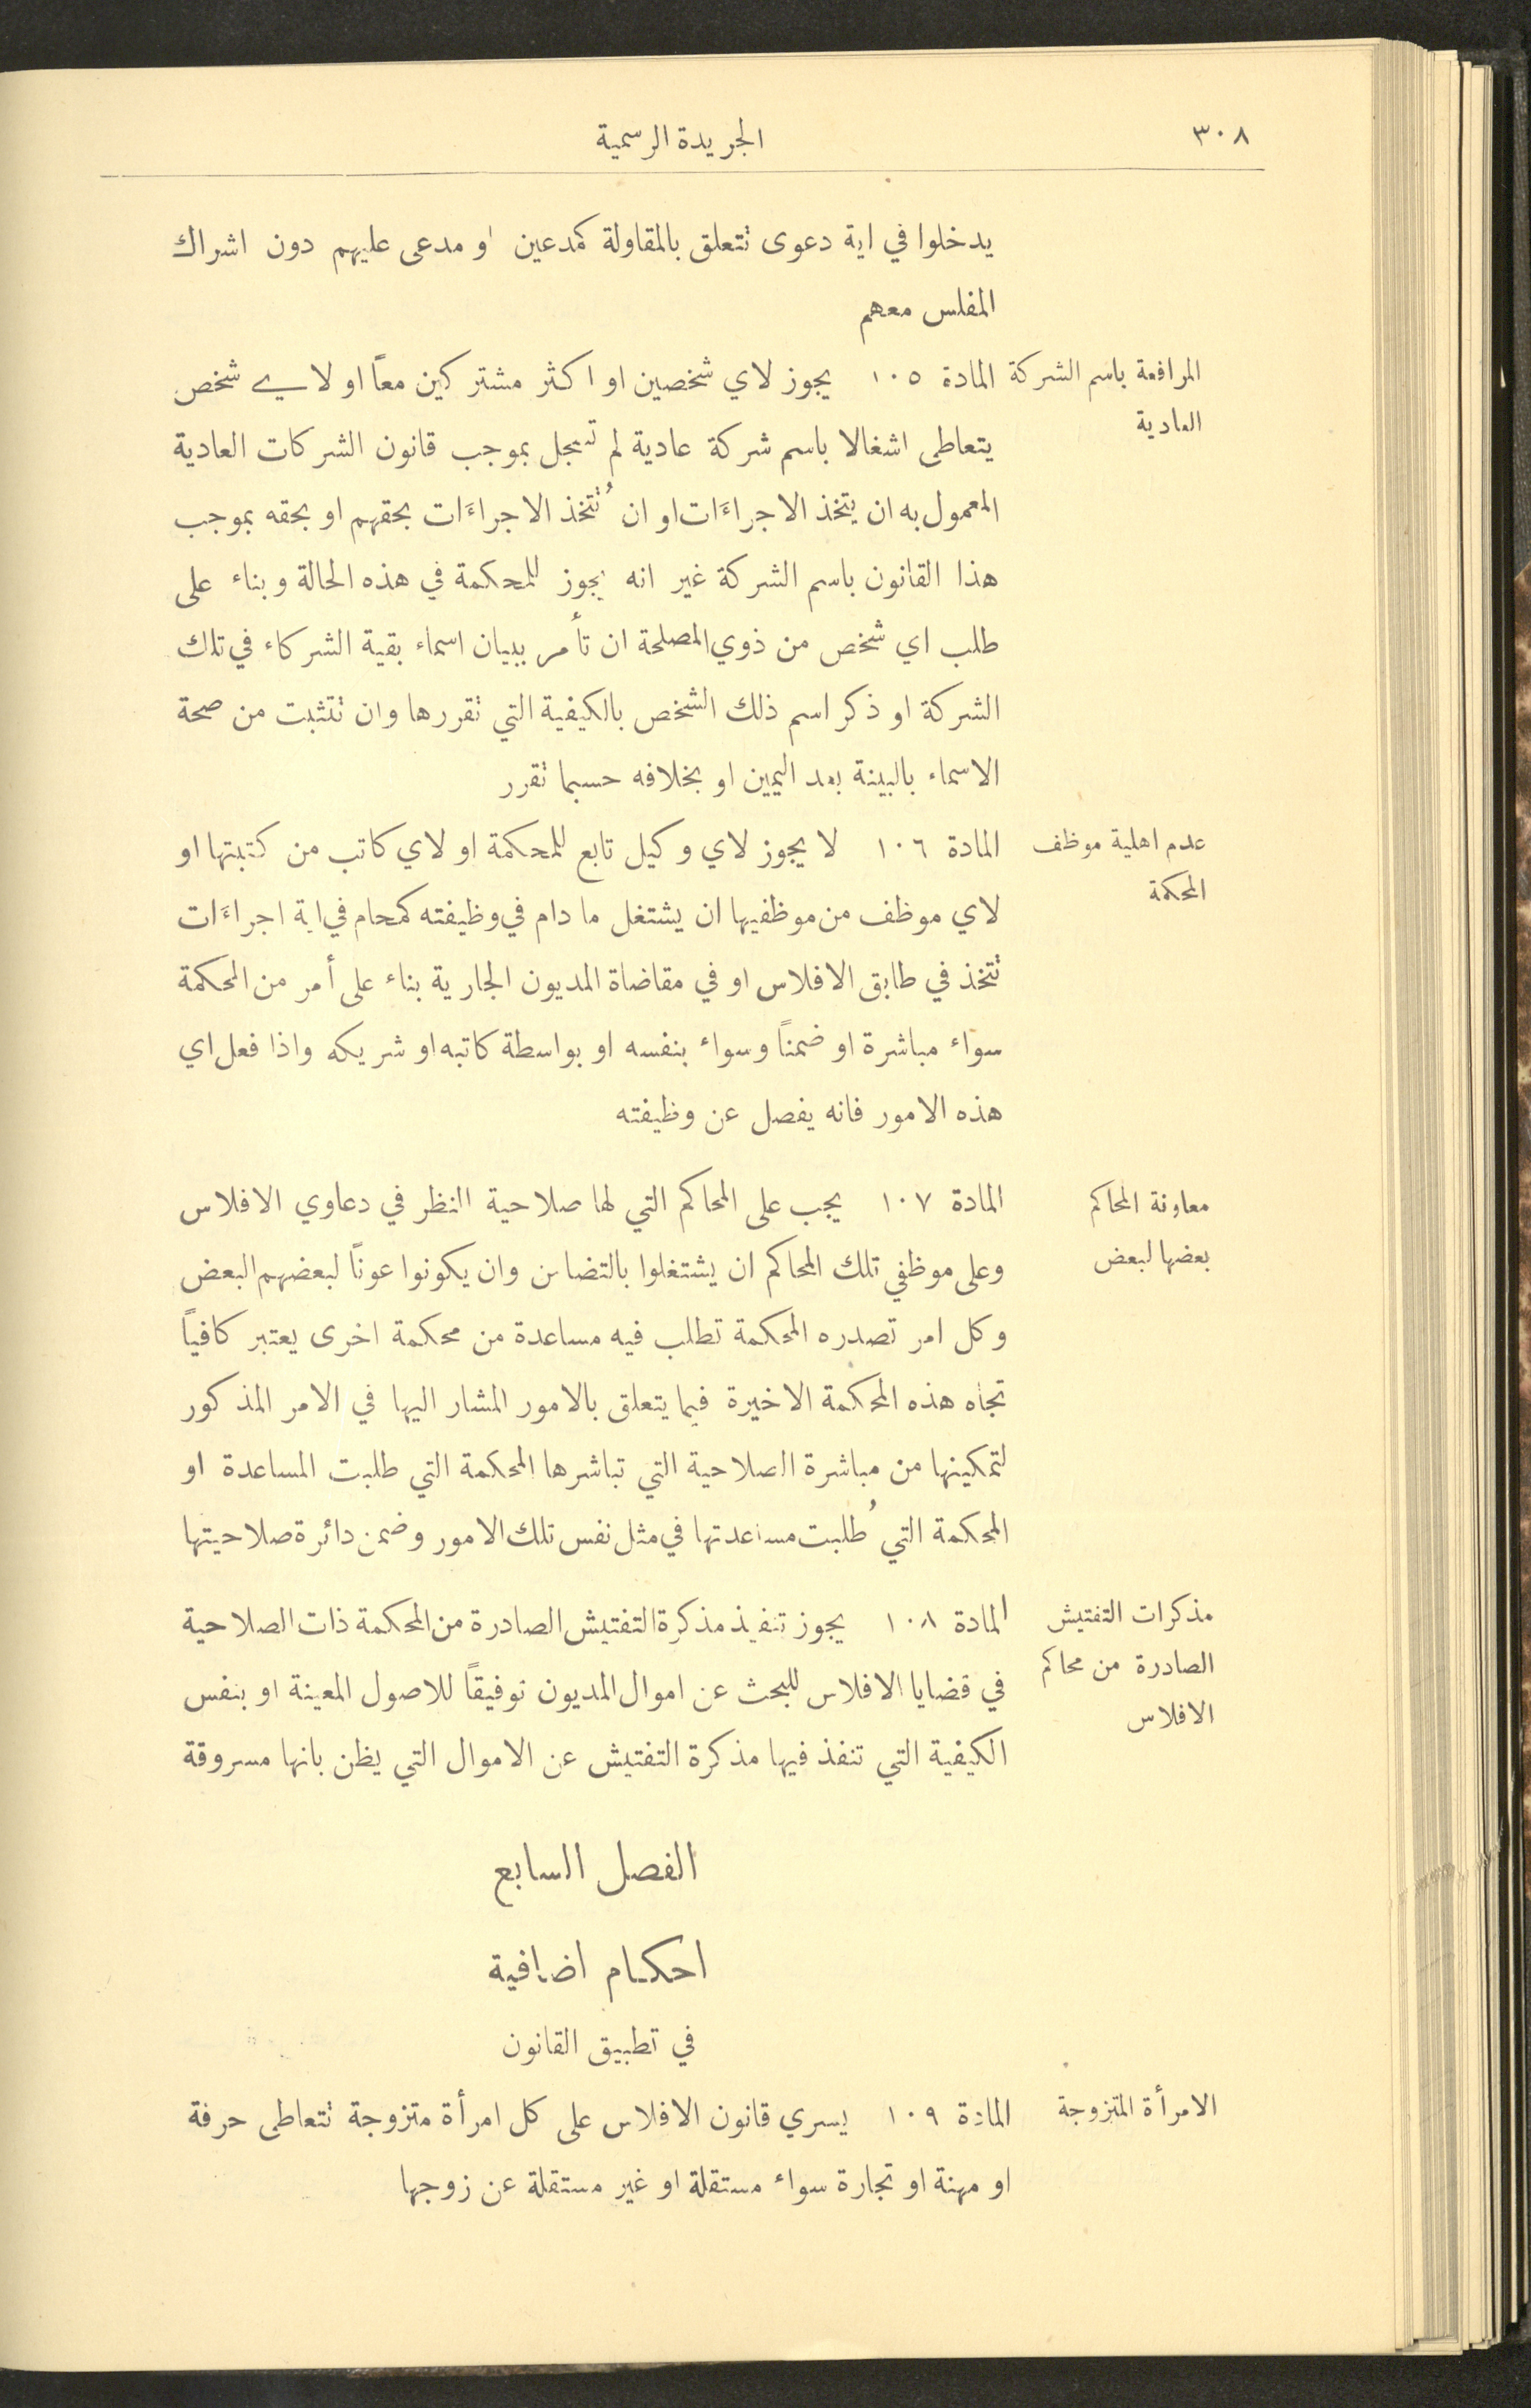 ٣٠٨
الجريدة الرسمية
يدخلوا في اية دعوى تتعلق بالمقاولة كمدعين او مدعى عليهم دون اشراك
المفلس معهم
المرافعة باسم الشركة
العادية
المادة ١٠٥ يجوز لاي شخصين او اكثر مشتركين معاً او لاي شخص
يتعاطى اشغالا باسم شركة عادية لم تسجل بموجب قانون الشركات العادية
المعمول به ان يتخذ الاجراءَات او ان تُتخذ الاجراءَات بحقهم او بحقه بموجب
هذا القانون باسم الشركة غير انه يجوز للمحكمة في هذه الحالة وبناء على
طلب اي شخص من ذوي المصلحة ان تأمر ببيان اسماء بقية الشركاء في تلك
الشركة او ذكر اسم ذلك الشخص بالكيفية التي تقررها وان تتثبت من صحة
الاسماء بالبينة بعد اليمين او بخلافه حسبما تقرر
عدم اهلية موظف
المحكمة
المادة ١٠٦ لا يجوز لاي وكيل تابع للمحكمة او لاي كاتب من كتبتها او
لاي موظف من موظفيها ان يشتغل ما دام في وظيفته كمحام في اية اجراءَات
تتخذ في طابق الافلاس او في مقاضاة المديون الجارية بناء على أمر من المحكمة
سواء مباشرة او ضمناً وسواء بنفسه او بواسطة كاتبه او شريكه واذا فعل اي
هذه الامور فانه يفصل عن وظيفته
معاونة المحاكم
بعضها لبعض
المادة ١٠٧ يجب على المحاكم التي لها صلاحية النظر في دعاوي الافلاس
وعلى موظفي تلك المحاكم ان يشتغلوا بالتضامن وان يكونوا عوناً لبعضهم البعض
وكل امر تصدره المحكمة تطلب فيه مساعدة من محكمة اخرى يعتبر كافياً
تجاه هذه المحكمة الاخيرة فيما يتعلق بالامور المشار اليها في الامر المذكور
لتمكينها من مباشرة الصلاحية التي تباشرها المحكمة التي طلبت المساعدة او
المحكمة التي طُلبت مساعدتها في مثل نفس تلك الامور وضمن دائرة صلاحيتها
مذكرات التفتيش
الصادرة من محاكم
الافلاس
المادة ١٠٨ يجوز تنفيذ مذكرة التفتيش الصادرة من المحكمة ذات الصلاحية
في قضايا الافلاس للبحث عن اموال المديون توفيقاً للاصول المعينة او بنفس
الكيفية التي تنفذ فيها مذكرة التفتيش عن الاموال التي يظن بانها مسروقة
الفصل السابع
احكام اضافية
في تطبيق القانون
الامرأة المتزوجة
المادة ١٠٩ يسري قانون الافلاس على كل امرأة متزوجة تتعاطى حرفة
او مهنة او تجارة سواء مستقلة او غير مستقلة عن زوجها